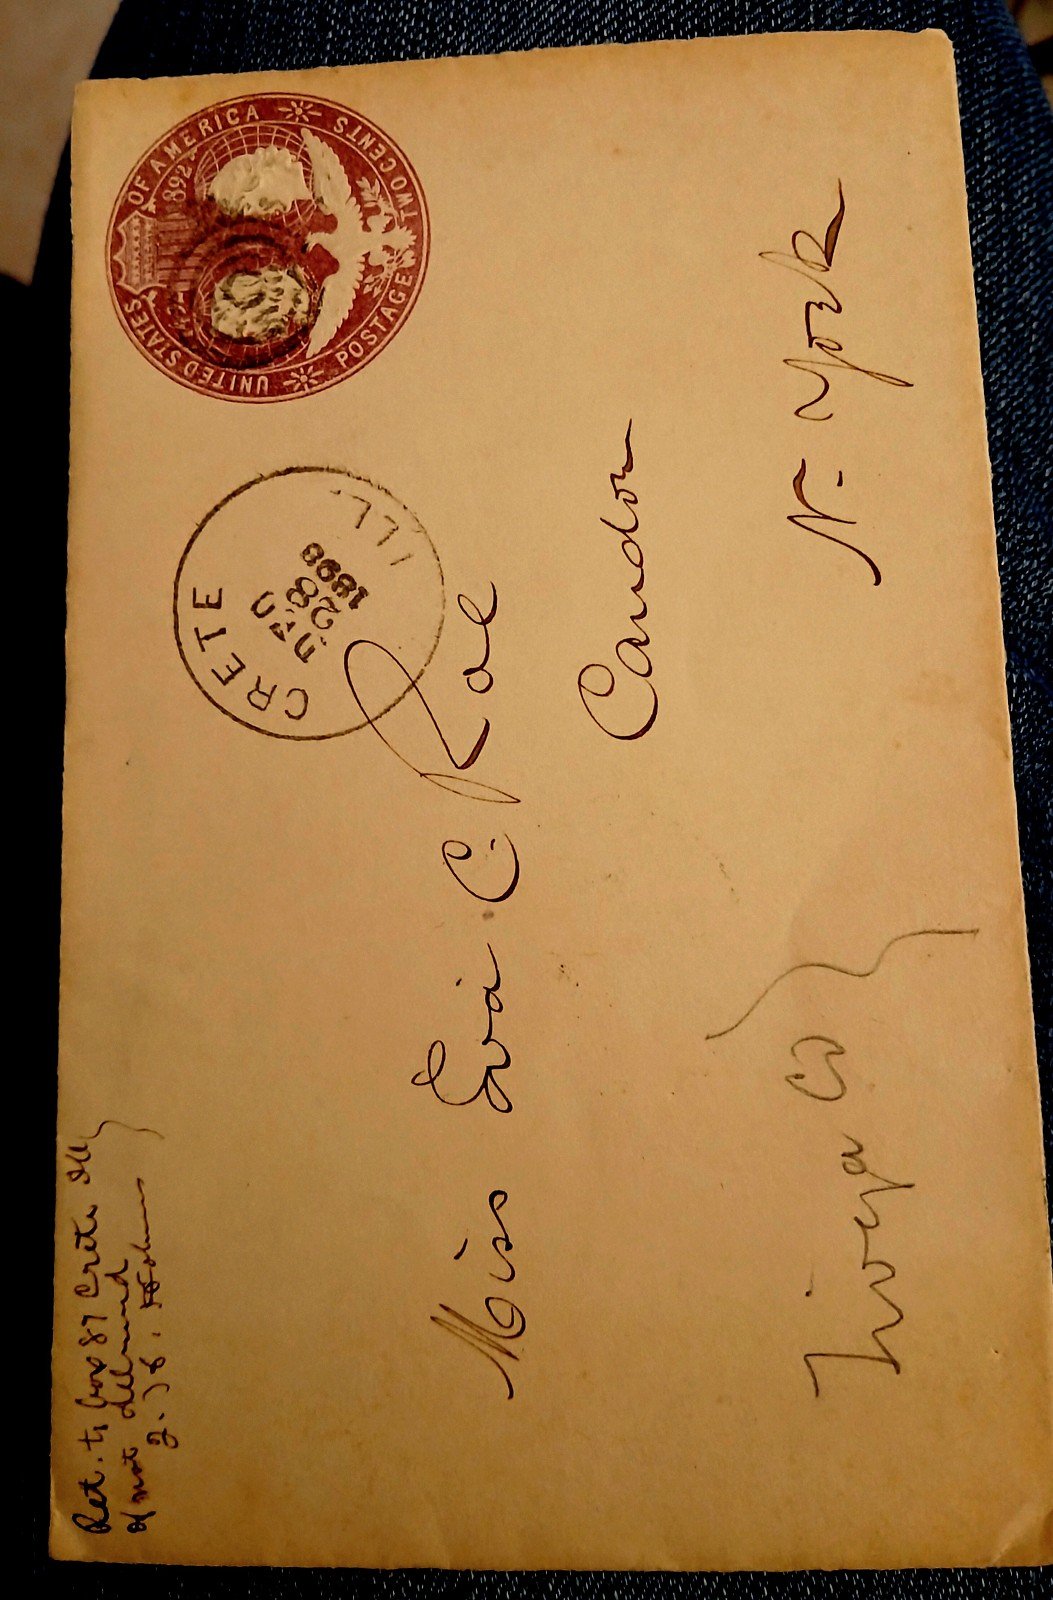 Ret. to box 87 Crete Ill
if not delivered
UNITED STATES OF AMERICA
POSTAGE TWO CENTS
1492 1892
CRETE ILL.
DEC
28
1893
Miss Eva C. Roe
Candor
Tioga Co
N. York